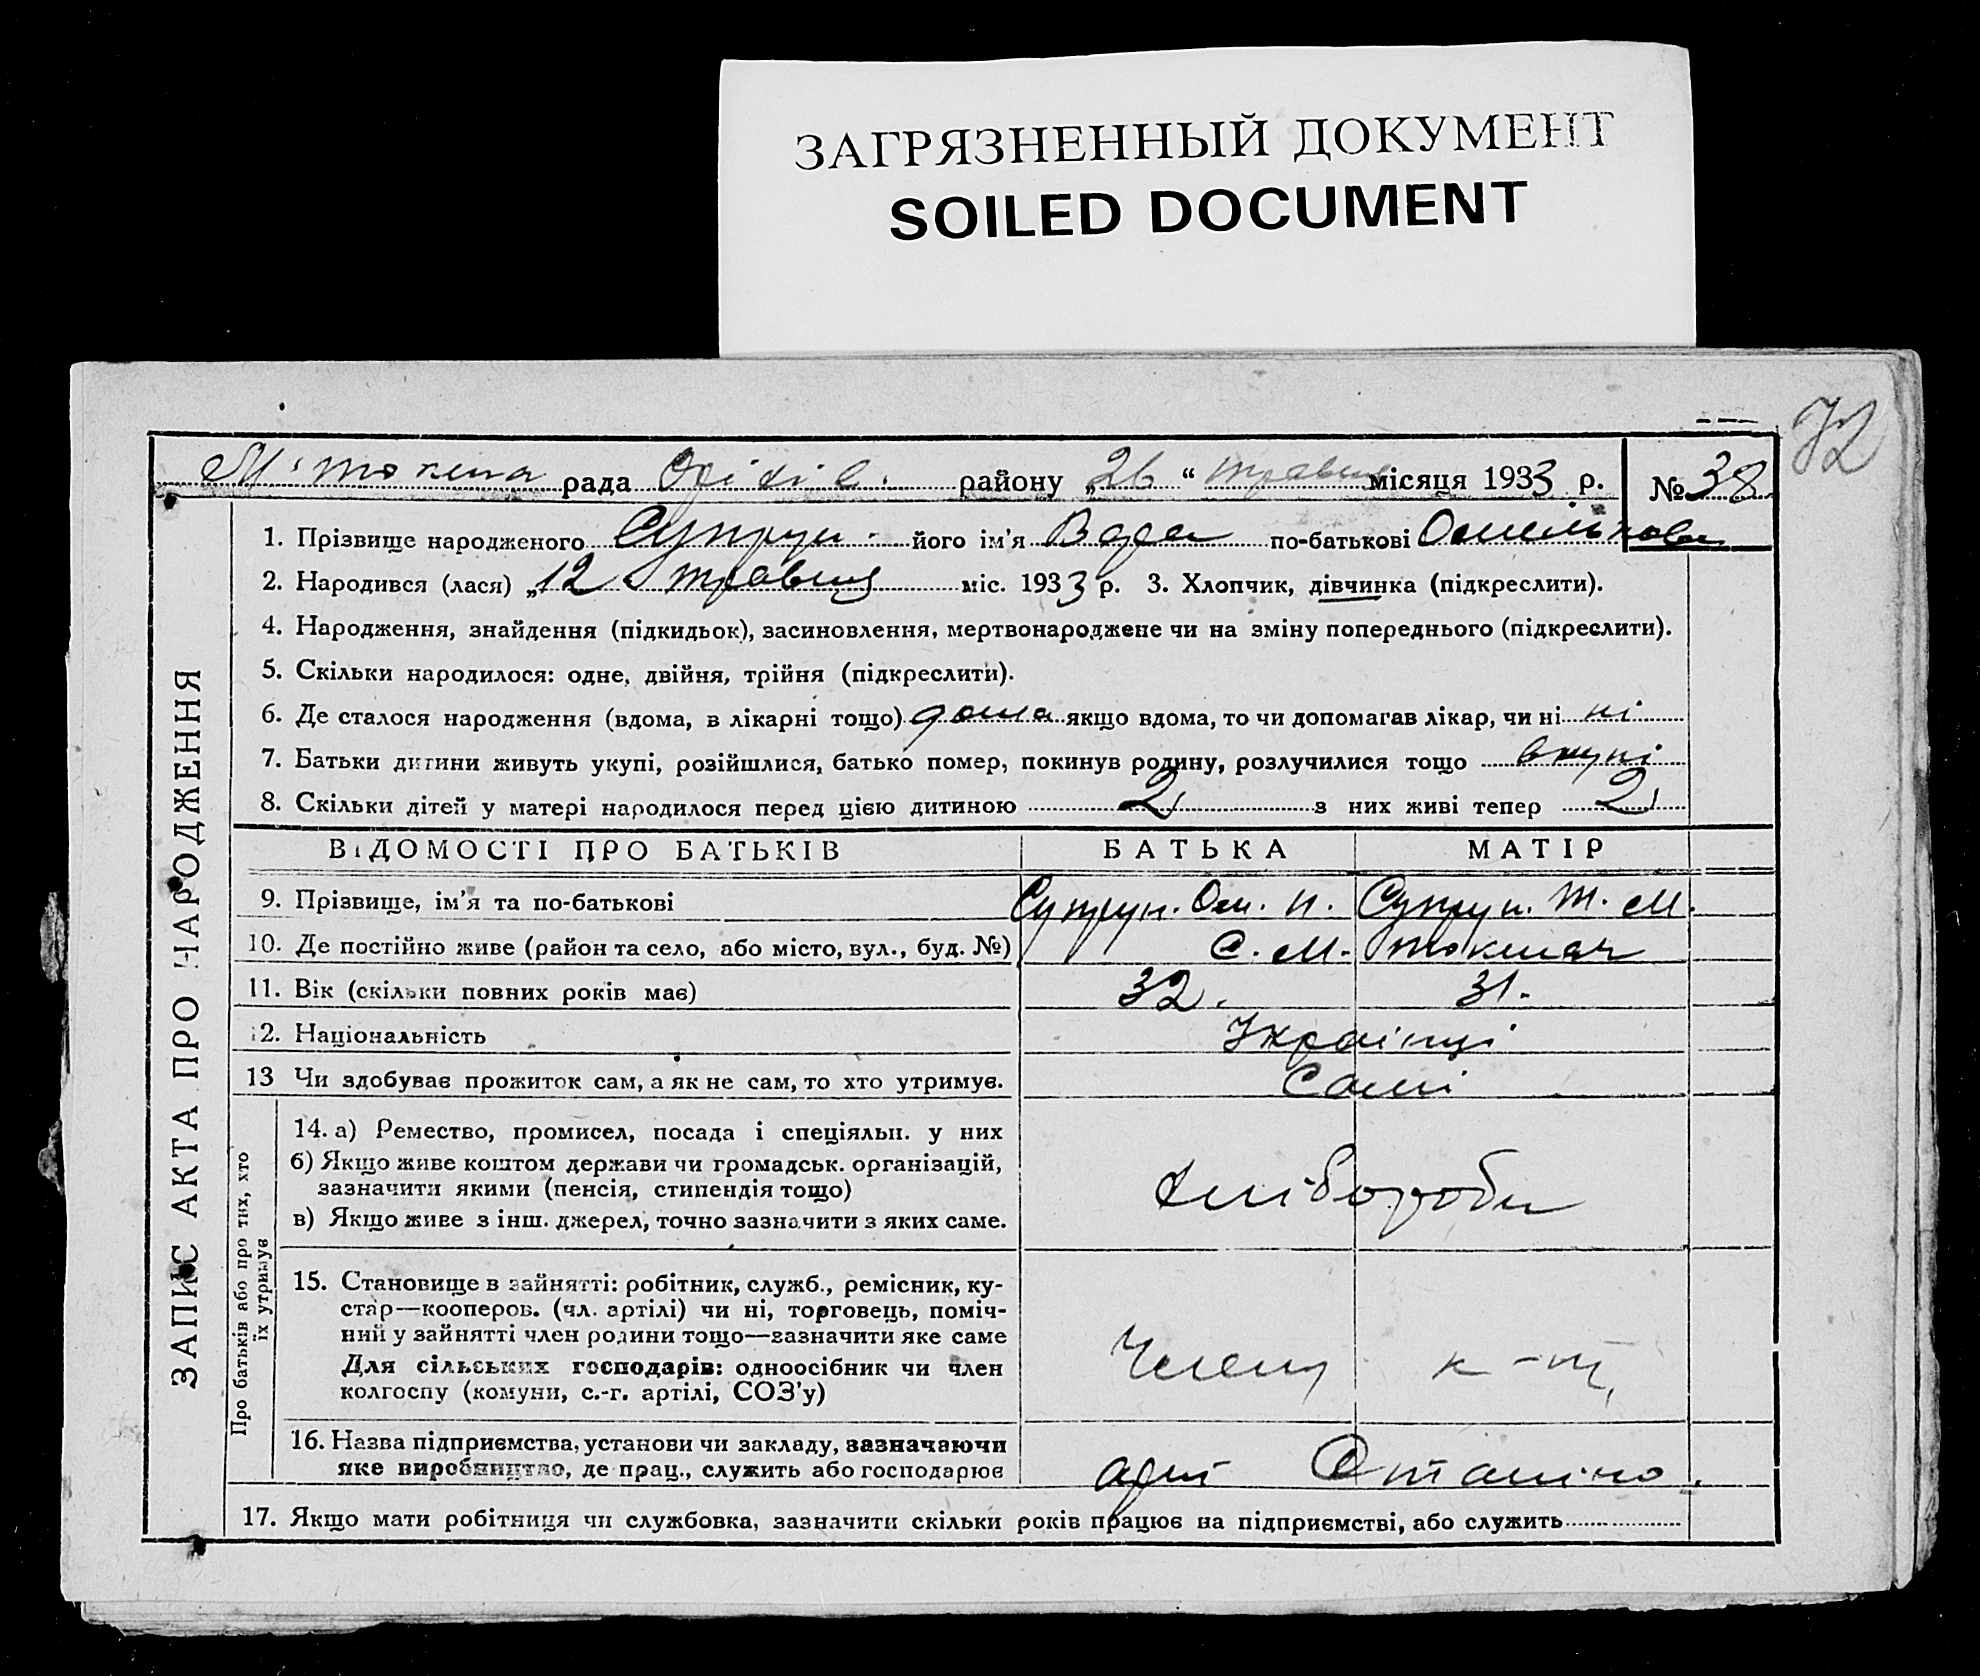 ЗАГРЯЗНЕННЫЙ ДОКУМЕНТ
SOILED DOCUMENT
72
рада району „26“ травня місяця 1933 р. № 38
1. Прізвище народженого Супрун його ім'я по-батькові
2. Народився (лася) „12 травня міс. 1933 р. 3. Хлопчик, дівчинка (підкреслити).
4. Народження, знайдення (підкидьок), засиновлення, мертвонароджене чи на зміну попереднього (підкреслити).
5. Скільки народилося: одне, двійня, трійня (підкреслити).
6. Де сталося народження (вдома, в лікарні тощо) дома якщо вдома, то чи допомагав лікар, чи ні ні
7. Батьки дитини живуть укупі, розійшлися, батько помер, покинув родину, розлучилися тощо вкупі
8. Скільки дітей у матері народилося перед цією дитиною 2 з них живі тепер 2
ВІДОМОСТІ ПРО БАТЬКІВ БАТЬКА МАТІР
9. Прізвище, ім'я та по-батькові Супрун. Ом. П. Супрун. Т. М.
10. Де постійно живе (район та село, або місто, вул., буд. №) С. М. Токмач
11. Вік (скільки повних років має) 32. 31.
12. Національність Українці
13 Чи здобуває прожиток сам, а як не сам, то хто утримує. Самі
14. а) Ремество, промисел, посада і спеціяльн. у них
б) Якщо живе коштом держави чи громадськ. організацій,
зазначити якими (пенсія, стипендія тощо)
в) Якщо живе з інш. джерел, точно зазначити з яких саме.
хлібороби
15. Становище в зайнятті: робітник, служб., ремісник, ку-
стар—кооперов. (чл. артілі) чи ні, торговець, поміч-
ний у зайнятті член родини тощо—зазначити яке саме
Для сільських господарів: одноосібник чи член
колгоспу (комуни, с.-г. артілі, СОЗ'у)
Члени к-т,
16. Назва підприємства, установи чи закладу, зазначаючи
яке виробництво, де прац., служить або господарює
арт Сталіно.
17. Якщо мати робітниця чи службовка, зазначити скільки років працює на підприємстві, або служить
ЗАПИС АКТА ПРО НАРОДЖЕННЯ
Про батьків або про тих, хто
їх утримує